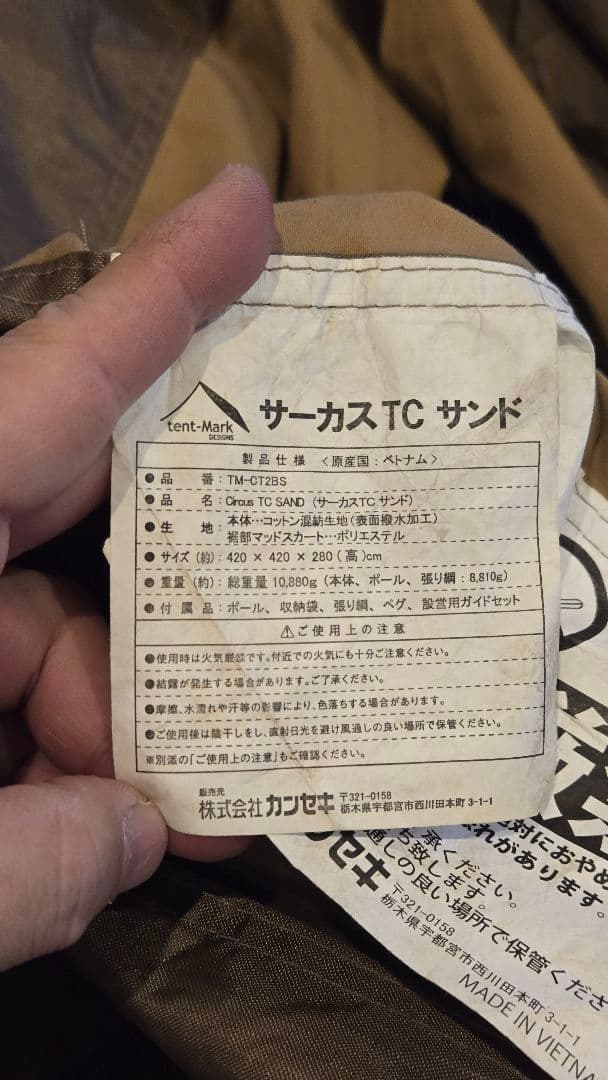 tent-Mark
DESIGNS
サーカスTC サンド
製品仕様 〈原産国：ベトナム〉
●品 番：TM-CT2BS
●品 名：Circus TC SAND（サーカスTC サンド）
●生 地：本体…コットン混紡生地（表面撥水加工）
裾部マッドスカート…ポリエステル
●サイズ（約）：420 × 420 × 280（高）cm
●重量（約）：総重量 10,880g（本体、ポール、張り綱：8,810g）
●付属品：ポール、収納袋、張り綱、ペグ、設営用ガイドセット
⚠ご使用上の注意
●使用時は火気厳禁です。付近での火気にも十分ご注意ください。
●結露が発生する場合があります。ご了承ください。
●摩擦、水濡れや汗等の影響により、色落ちする場合があります。
●ご使用後は陰干しをし、直射日光を避け風通しの良い場所で保管ください。
※別添の「ご使用上の注意」もご確認ください。
販売元
株式会社 カンセキ 〒321-0158
栃木県宇都宮市西川田本町 3-1-1
絶対におやめ
れがあります。
承ください。
ち致します。
通しの良い場所で保管くださ
ンセキ
〒321-0158
栃木県宇都宮市西川田本町 3-1-1
MADE IN VIETNA